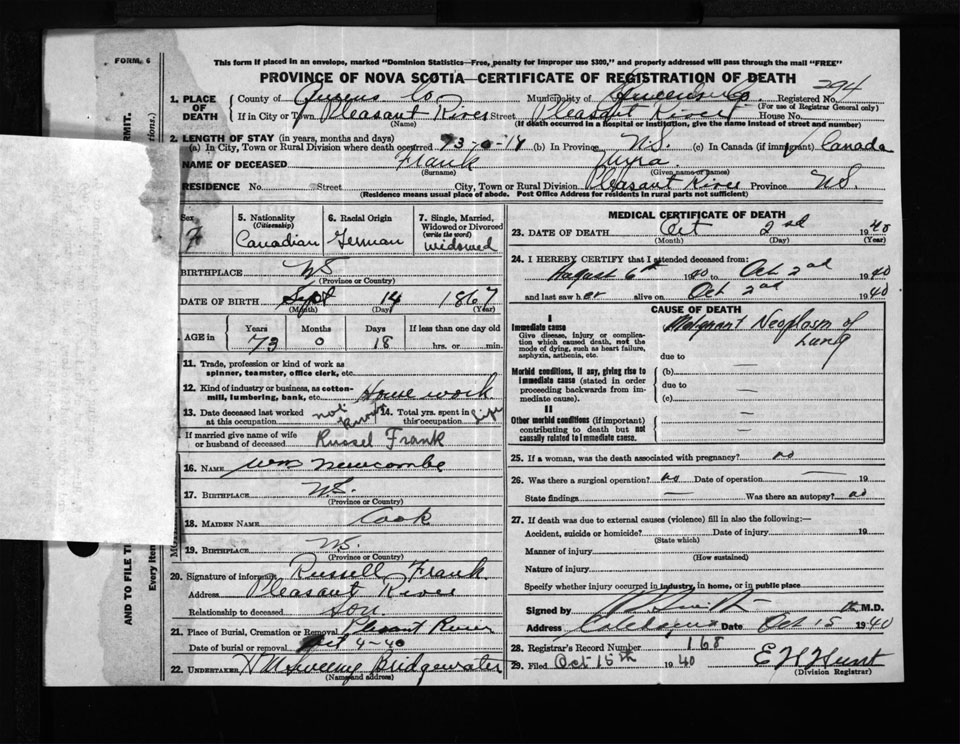 FORM. 6
This form if placed in an envelope, marked "Dominion Statistics—Free, penalty for improper use $300," and properly addressed will pass through the mail "FREE"
PROVINCE OF NOVA SCOTIA—CERTIFICATE OF REGISTRATION OF DEATH
294
1. PLACE OF DEATH County of Queens Co Municipality of Queens Co. Registered No.
(For use of Registrar General only)
If in City or Town Pleasant River Street Pleasant River House No.
(Name) (If death occurred in a hospital or institution, give the name instead of street and number)
2. LENGTH OF STAY (in years, months and days)
(a) In City, Town or Rural Division where death occurred 73-0-18 (b) In Province N.S. (c) In Canada (if immigrant) Canada
NAME OF DECEASED Frank Myra
(Surname) (Given name or names)
RESIDENCE No. Street City, Town or Rural Division Pleasant River Province N.S.
(Residence means usual place of abode. Post Office Address for residents in rural parts not sufficient)
Sex 5. Nationality 6. Racial Origin 7. Single, Married, Widowed or Divorced
(Citizenship) (write the word)
F Canadian German Widowed
BIRTHPLACE N.S.
(Province or Country)
DATE OF BIRTH Sept 14 1867
(Month) (Day) (Year)
AGE in Years Months Days If less than one day old
73 0 18 hrs. or min.
11. Trade, profession or kind of work as spinner, teamster, office clerk, etc.
12. Kind of industry or business, as cotton-mill, lumbering, bank, etc. House work
13. Date deceased last worked at this occupation not known 14. Total yrs. spent in this occupation life
If married give name of wife or husband of deceased Russel Frank
16. NAME Wm Newcombe
17. BIRTHPLACE N.S.
(Province or Country)
18. MAIDEN NAME Cook
19. BIRTHPLACE N.S.
(Province or Country)
20. Signature of informant Russell Frank
Address Pleasant River
Relationship to deceased Son.
21. Place of Burial, Cremation or Removal Pleasant River
Date of burial or removal Oct 4-40
22. UNDERTAKER Bridgewater
(Name and address)
MEDICAL CERTIFICATE OF DEATH
23. DATE OF DEATH Oct 2nd 1940
(Month) (Day) (Year)
24. I HEREBY CERTIFY that I attended deceased from:
August 6th 1940 to Oct 2nd 1940
and last saw her alive on Oct 2nd 1940
CAUSE OF DEATH
I
Immediate cause Malignant Neoplasm of Lung
Give disease, injury or complication which caused death, not the mode of dying, such as heart failure, asphyxia, asthenia, etc. due to
Morbid conditions, if any, giving rise to immediate cause (stated in order proceeding backwards from immediate cause). (b) —
due to —
(c) —
II
Other morbid conditions (if important) contributing to death but not causally related to immediate cause. — —
25. If a woman, was the death associated with pregnancy? no
26. Was there a surgical operation? no Date of operation — 19
State findings — Was there an autopsy? no
27. If death was due to external causes (violence) fill in also the following:—
Accident, suicide or homicide? Date of injury 19
(State which)
Manner of injury
(How sustained)
Nature of injury
Specify whether injury occurred in industry, in home, or in public place
Signed by M.D.
Address Caledonia Date Oct 15 1940
28. Registrar's Record Number 168
29. Filed Oct 15th 1940 E H Hunt
(Division Registrar)
AND TO FILE T
Every item